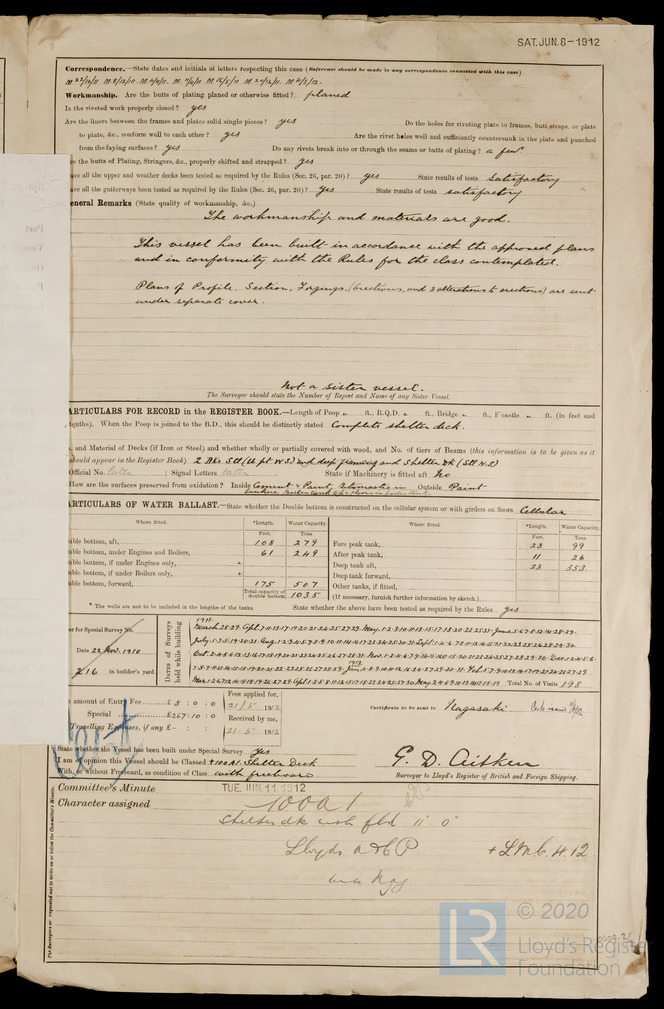 SAT. JUN. 8-1912
Correspondence.—State dates and initials of letters respecting this case (Reference should be made to any correspondence connected with this case)
Workmanship. Are the butts of plating planed or otherwise fitted? planed
Is the riveted work properly closed? yes
Are the liners between the frames and plates solid single pieces? yes Do the holes for riveting plate to frames, butt straps, or plate
to plate, &c., conform well to each other? yes Are the rivet holes well and sufficiently countersunk in the plate and punched
from the faying surfaces? yes Do any rivets break into or through the seams or butts of plating? a few
e the butts of Plating, Stringers, &c., properly shifted and strapped? yes
ave all the upper and weather decks been tested as required by the Rules (Sec. 26, par. 20)? yes State results of tests satisfactory
ave all the gutterways been tested as required by the Rules (Sec. 26, par. 20)? yes State results of tests satisfactory
eneral Remarks (State quality of workmanship, &c.)
The workmanship and materials are good.
This vessel has been built in accordance with the approved plans
and in conformity with the Rules for the class contemplated.
Plans of Profile, Section, Forgings, (Erections, and 3 alterations to erections) are sent
under separate cover.
Not a sister vessel.
The Surveyor should state the Number of Report and Name of any Sister Vessel.
ARTICULARS FOR RECORD in the REGISTER BOOK.—Length of Poop ft., R.Q.D. ft., Bridge ft., F'castle ft. (in feet and
tenths). When the Poop is joined to the B.D., this should be distinctly stated Complete shelter deck.
, and Material of Decks (if Iron or Steel) and whether wholly or partially covered with wood, and No. of tiers of Beams (this information is to be given as it
should appear in the Register Book) 2 Dks Stl (U pt W S) and deep framing and Shelter Dk (Stl N.S)
Official No. later ; Signal Letters later State if Machinery is fitted aft No
How are the surfaces preserved from oxidation? Inside Cement & Paint, Bitumastic in Outside Paint
ARTICULARS OF WATER BALLAST.—State whether the Double bottom is constructed on the cellular system or with girders on floors Cellular
Where Sited. *Length. Water Capacity. Where Sited. *Length. Water Capacity.
Feet. Tons. Feet. Tons.
uble bottom, aft, 108 279 Fore peak tank, 23 99
uble bottom, under Engines and Boilers, 61 249 After peak tank, 11 26
uble bottom, if under Engines only, Deep tank aft, 23 353
uble bottom, if under Boilers only, Deep tank forward,
uble bottom, forward, 175 507 Other tanks, if fitted,
Total capacity of double bottom 1035 (If necessary, furnish further information by sketch)
* The wells are not to be included in the lengths of the tanks. State whether the above have been tested as required by the Rules yes
er for Special Survey No.
Date 22 Nov. 1910
216 in builder's yard.
Dates of Surveys held while building
1911
1912
Total No. of Visits 198
amount of Entry Fee £ 5 : 0 : 0
Special £267 : 10 : 0
Travelling Expenses, if any £
Fees applied for,
21/5 1912
Received by me,
23.5 1912
Certificate to be sent to Nagasaki
State whether the Vessel has been built under Special Survey Yes
I am of opinion this Vessel should be Classed +100A1 Shelter Deck
With, or without Freeboard, as condition of Class with freeboard
G. D. Aitken
Surveyor to Lloyd's Register of British and Foreign Shipping.
Committee's Minute TUE. JUN. 11. 1912
Character assigned 100A1
Shelter dk with fbd 11'. 0"
Lloyds A & C P + L.M.C. 4. 12.
The Surveyors are requested not to write on or below the Committee's Minute.
LR
© 2020
Lloyd's Register
Foundation